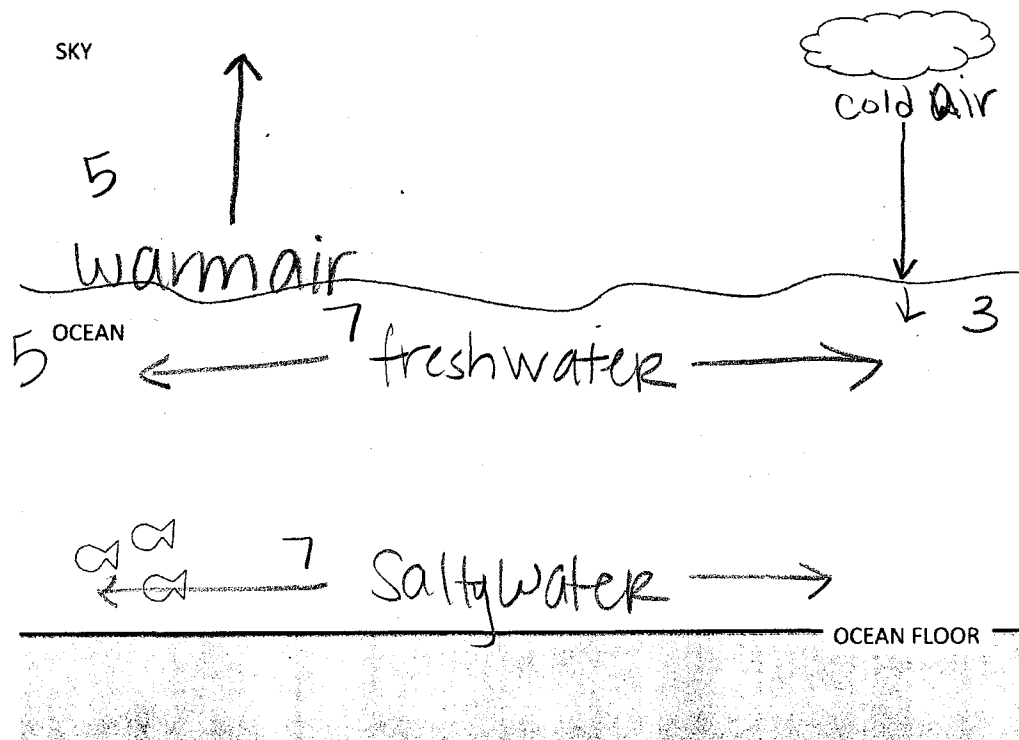 SKY
cold air
5
warm air
7
3
OCEAN
5
freshwater
7
Salty water
OCEAN FLOOR